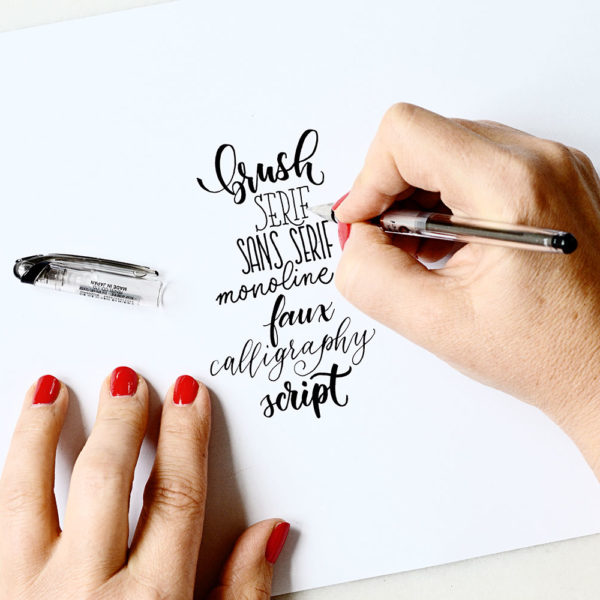 brush
SERIF
SANS SERIF
monoline
faux
calligraphy
script
MADE IN JAPAN